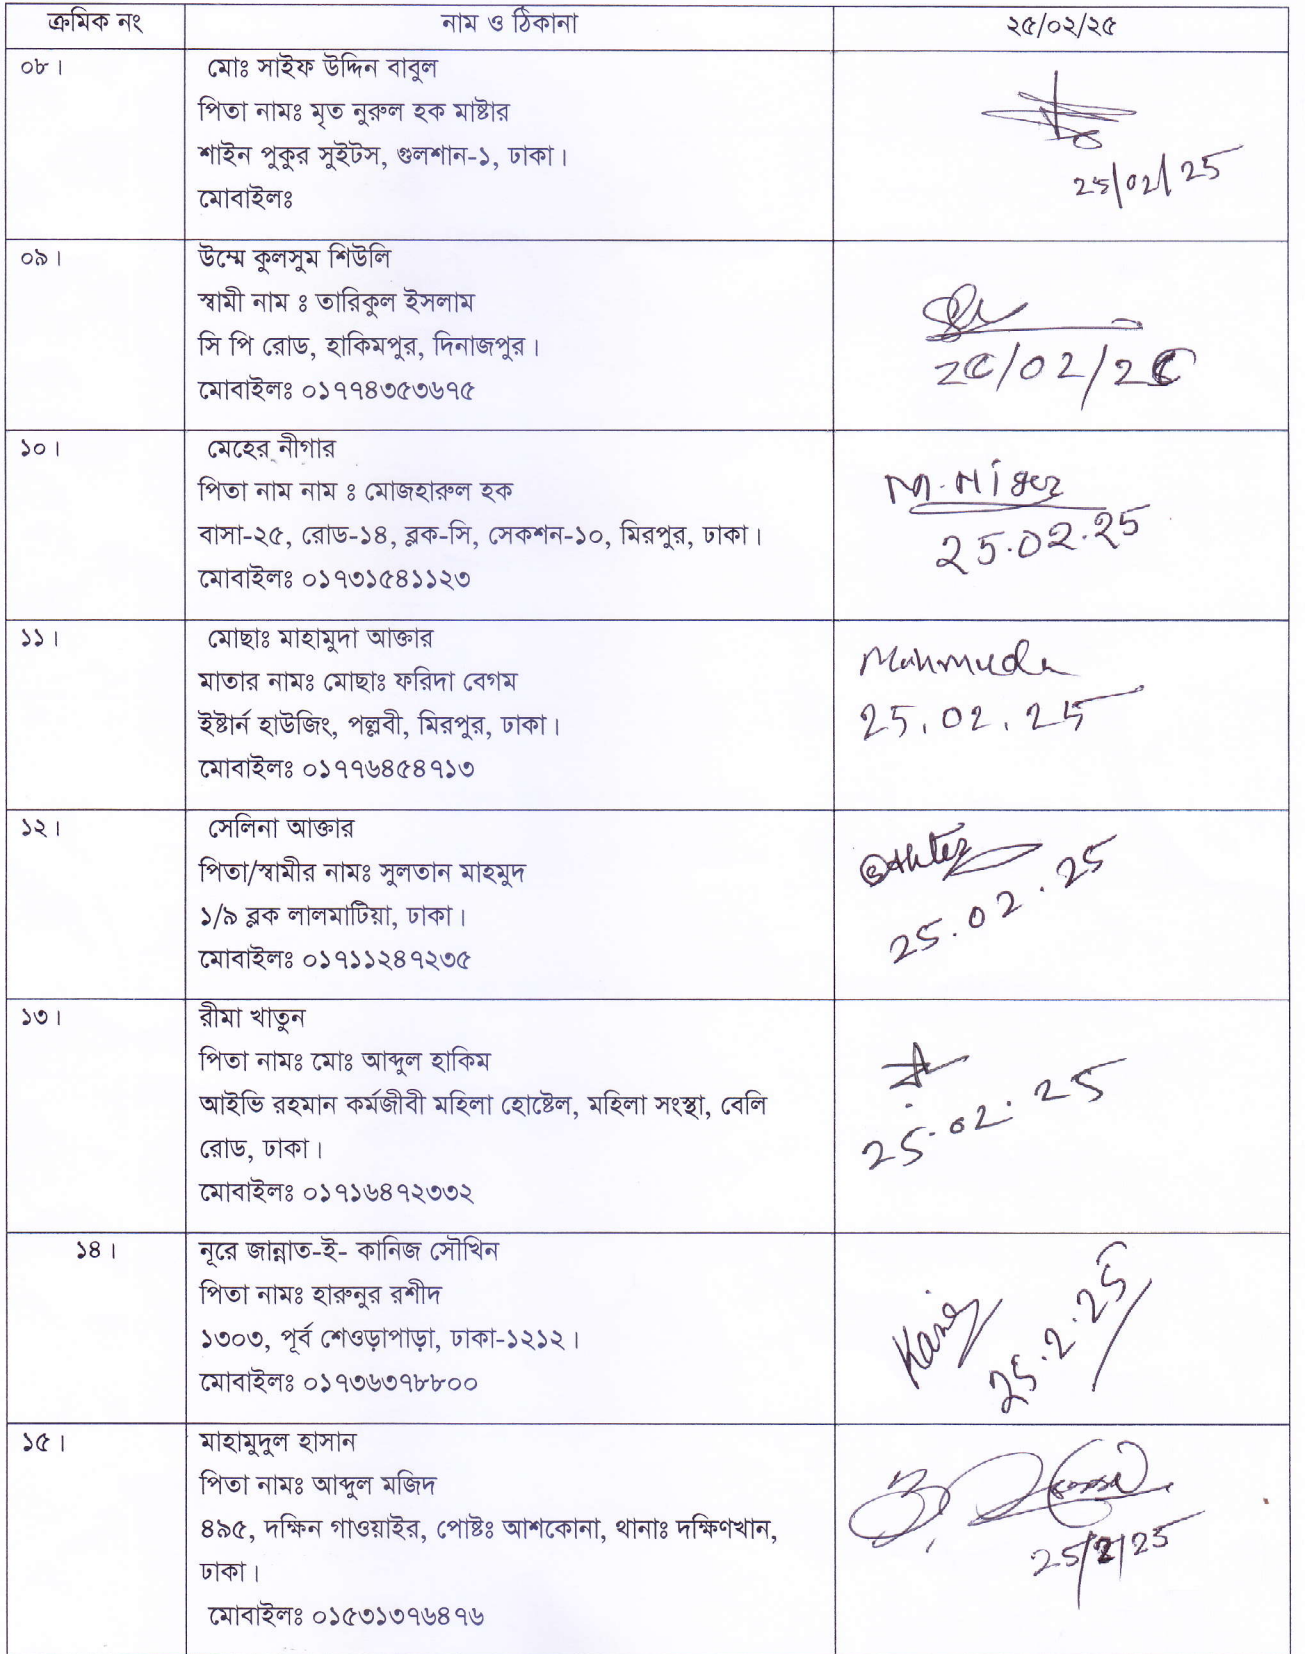 ক্রমিক নং নাম ও ঠিকানা ২৫/০২/২৫
০৮। মোঃ সাইফ উদ্দিন বাবুল
পিতা নামঃ মৃত নুরুল হক মাষ্টার
শাইন পুকুর সুইটস, গুলশান-১, ঢাকা।
মোবাইলঃ
25/02/25
০৯। উম্মে কুলসুম শিউলি
স্বামী নাম ঃ তারিকুল ইসলাম
সি পি রোড, হাকিমপুর, দিনাজপুর।
মোবাইলঃ ০১৭৭৪৩৫৩৬৭৫
2৫/02/2৫
১০। মেহের নীগার
পিতা নাম নাম ঃ মোজহারুল হক
বাসা-২৫, রোড-১৪, ব্লক-সি, সেকশন-১০, মিরপুর, ঢাকা।
মোবাইলঃ ০১৭৩১৫৪১১২৩
M. Niger
25.02.25
১১। মোছাঃ মাহামুদা আক্তার
মাতার নামঃ মোছাঃ ফরিদা বেগম
ইষ্টার্ন হাউজিং, পল্লবী, মিরপুর, ঢাকা।
মোবাইলঃ ০১৭৭৬৪৫৪৭১৩
Mahmuda
25.02.25
১২। সেলিনা আক্তার
পিতা/স্বামীর নামঃ সুলতান মাহমুদ
১/৯ ব্লক লালমাটিয়া, ঢাকা।
মোবাইলঃ ০১৭১১২৪৭২৩৫
25.02.25
১৩। রীমা খাতুন
পিতা নামঃ মোঃ আব্দুল হাকিম
আইভি রহমান কর্মজীবী মহিলা হোষ্টেল, মহিলা সংস্থা, বেলি
রোড, ঢাকা।
মোবাইলঃ ০১৭১৬৪৭২৩৩২
25.02.25
১৪। নূরে জান্নাত-ই- কানিজ সৌখিন
পিতা নামঃ হারুনুর রশীদ
১৩০৩, পূর্ব শেওড়াপাড়া, ঢাকা-১২১২।
মোবাইলঃ ০১৭৩৬৩৭৮৮০০
Kaniz
25.2.25
১৫। মাহামুদুল হাসান
পিতা নামঃ আব্দুল মজিদ
৪৯৫, দক্ষিন গাওয়াইর, পোষ্টঃ আশকোনা, থানাঃ দক্ষিণখান,
ঢাকা।
মোবাইলঃ ০১৫৩১৩৭৬৪৭৬
25/2/25